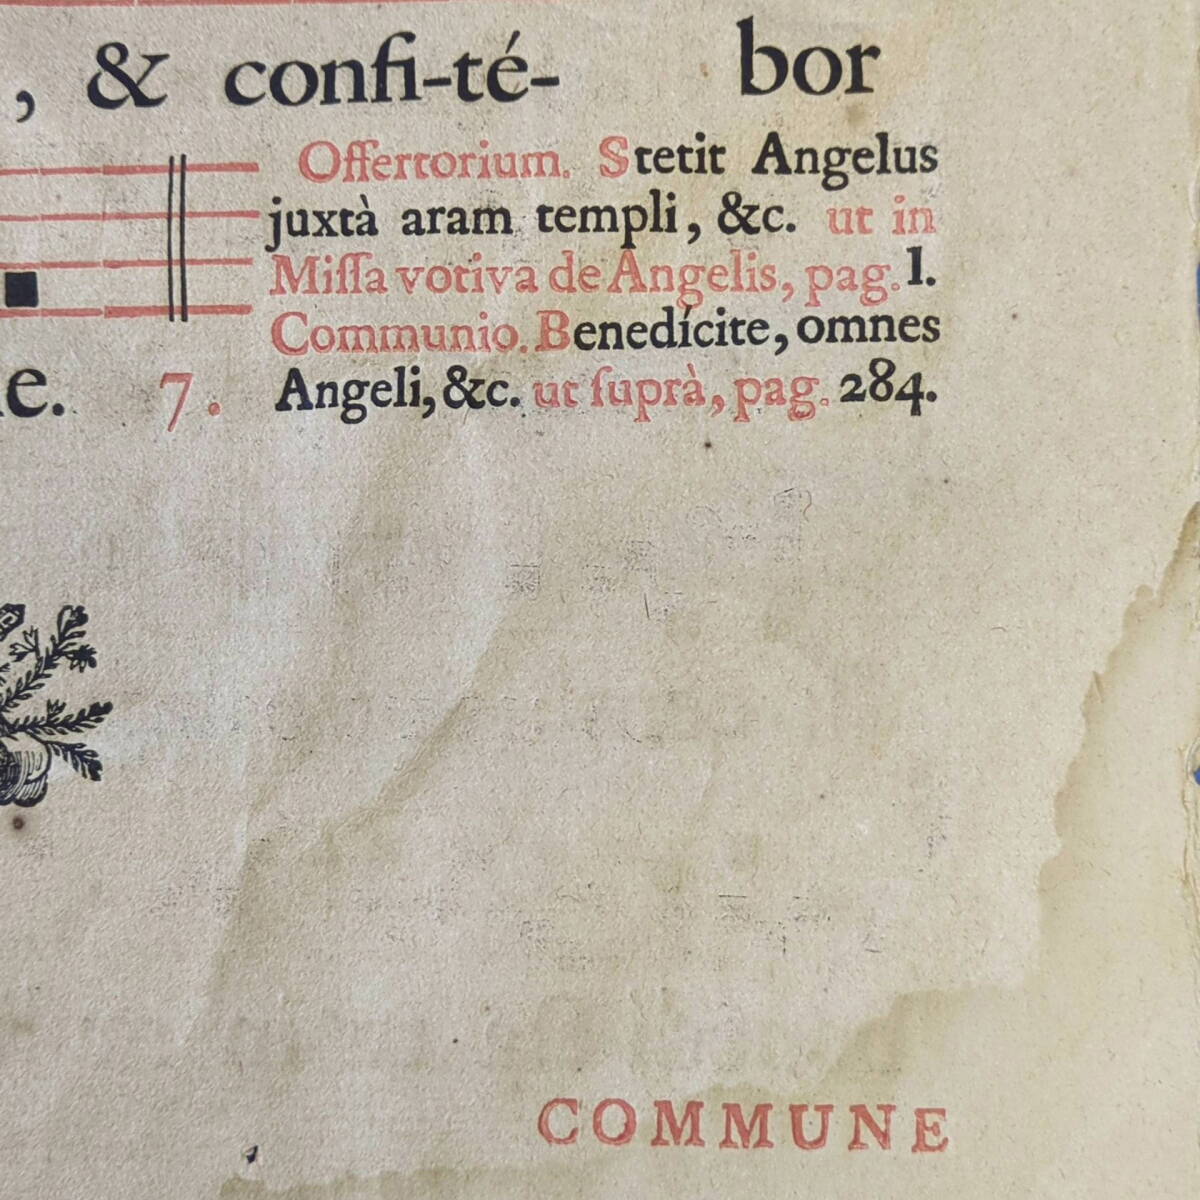 , & confi-té- bor
Offertorium. Stetit Angelus
juxtà aram templi, &c. ut in
Miſſa votiva de Angelis, pag. l.
Communio. Benedícite, omnes
e. 7. Angeli, &c. ut ſuprà, pag. 284.
COMMUNE